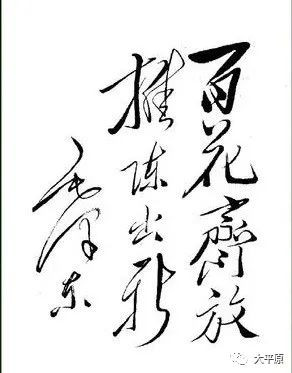 百花齊放
推陈出新
毛泽东
大平原